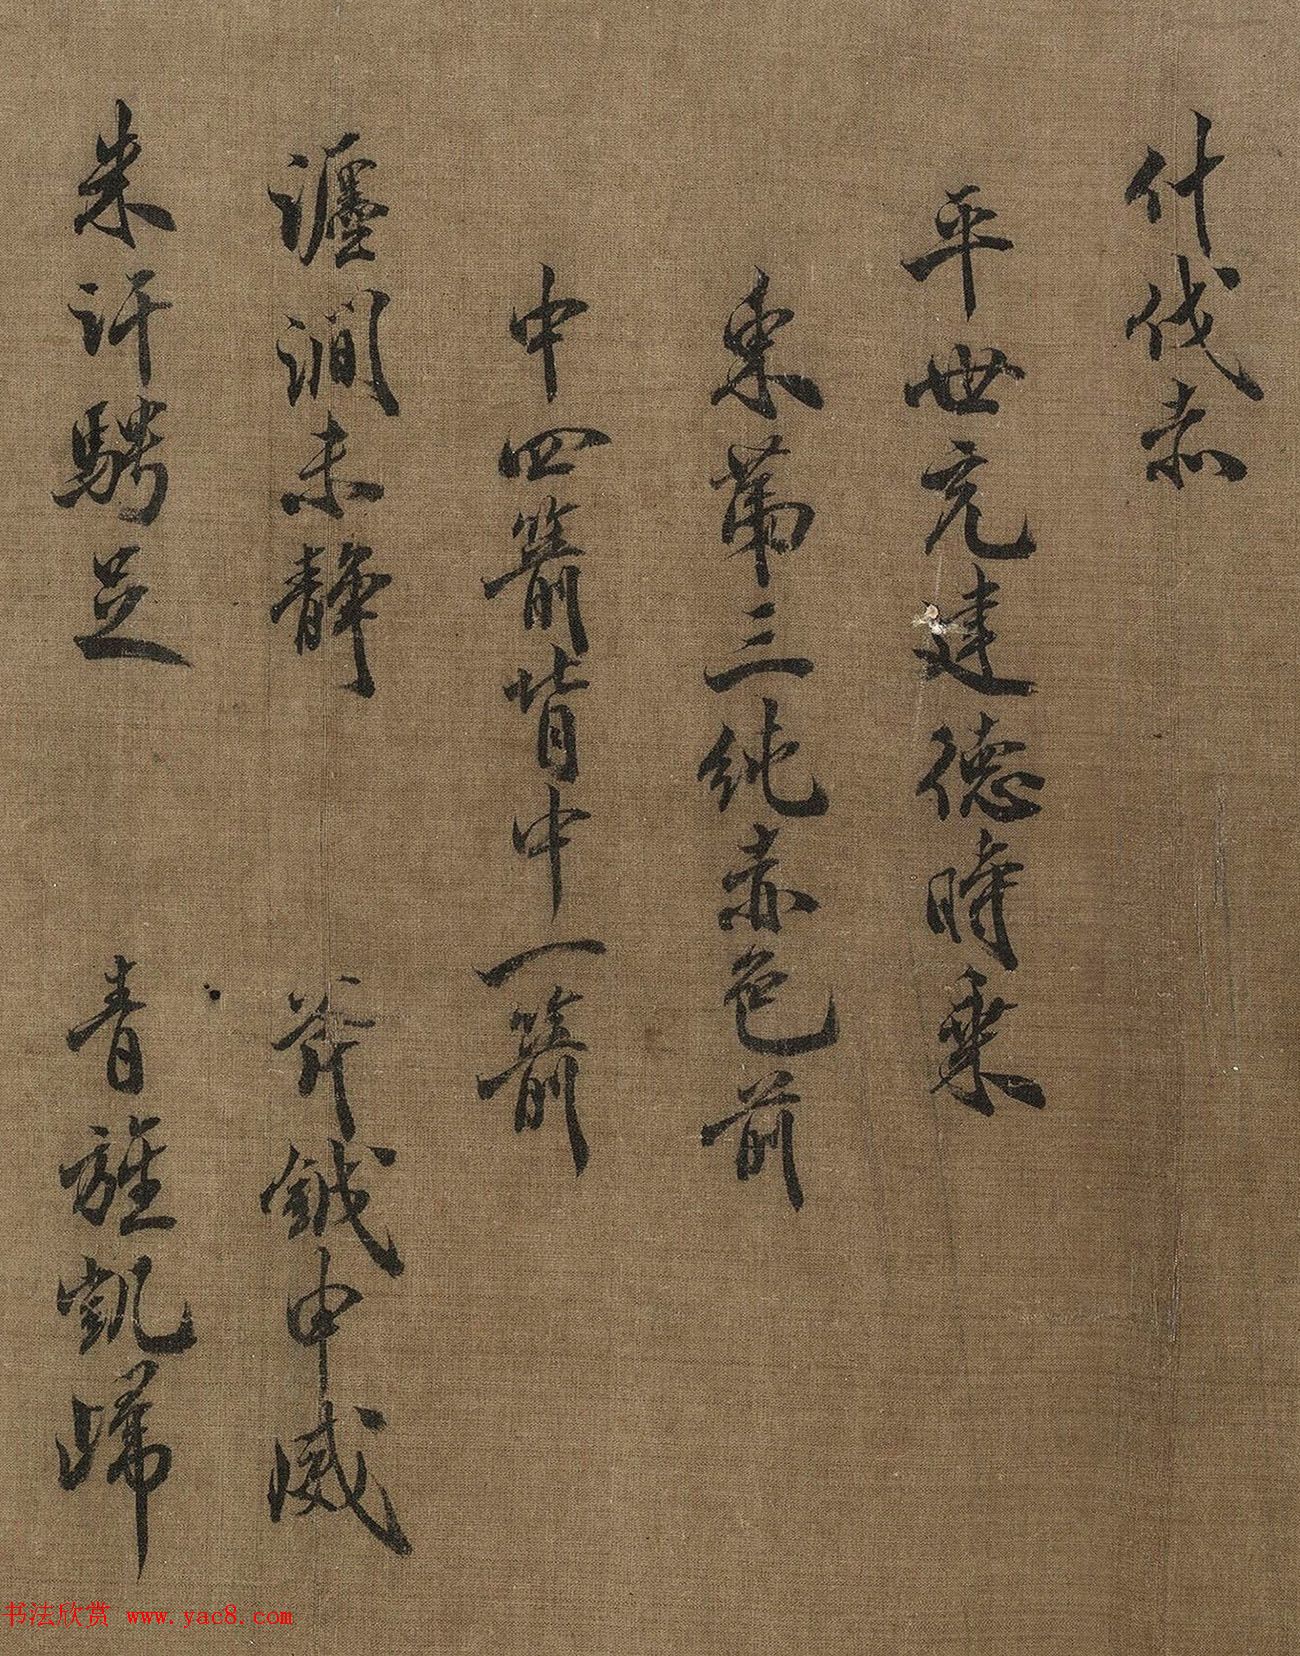 什伐赤
平世充建德時乘
東第三純赤色前
中四箭背中一箭
瀍澗未靜 斧鉞申威
朱汗騁足 青旌凱歸
书法欣赏 www.yac8.com